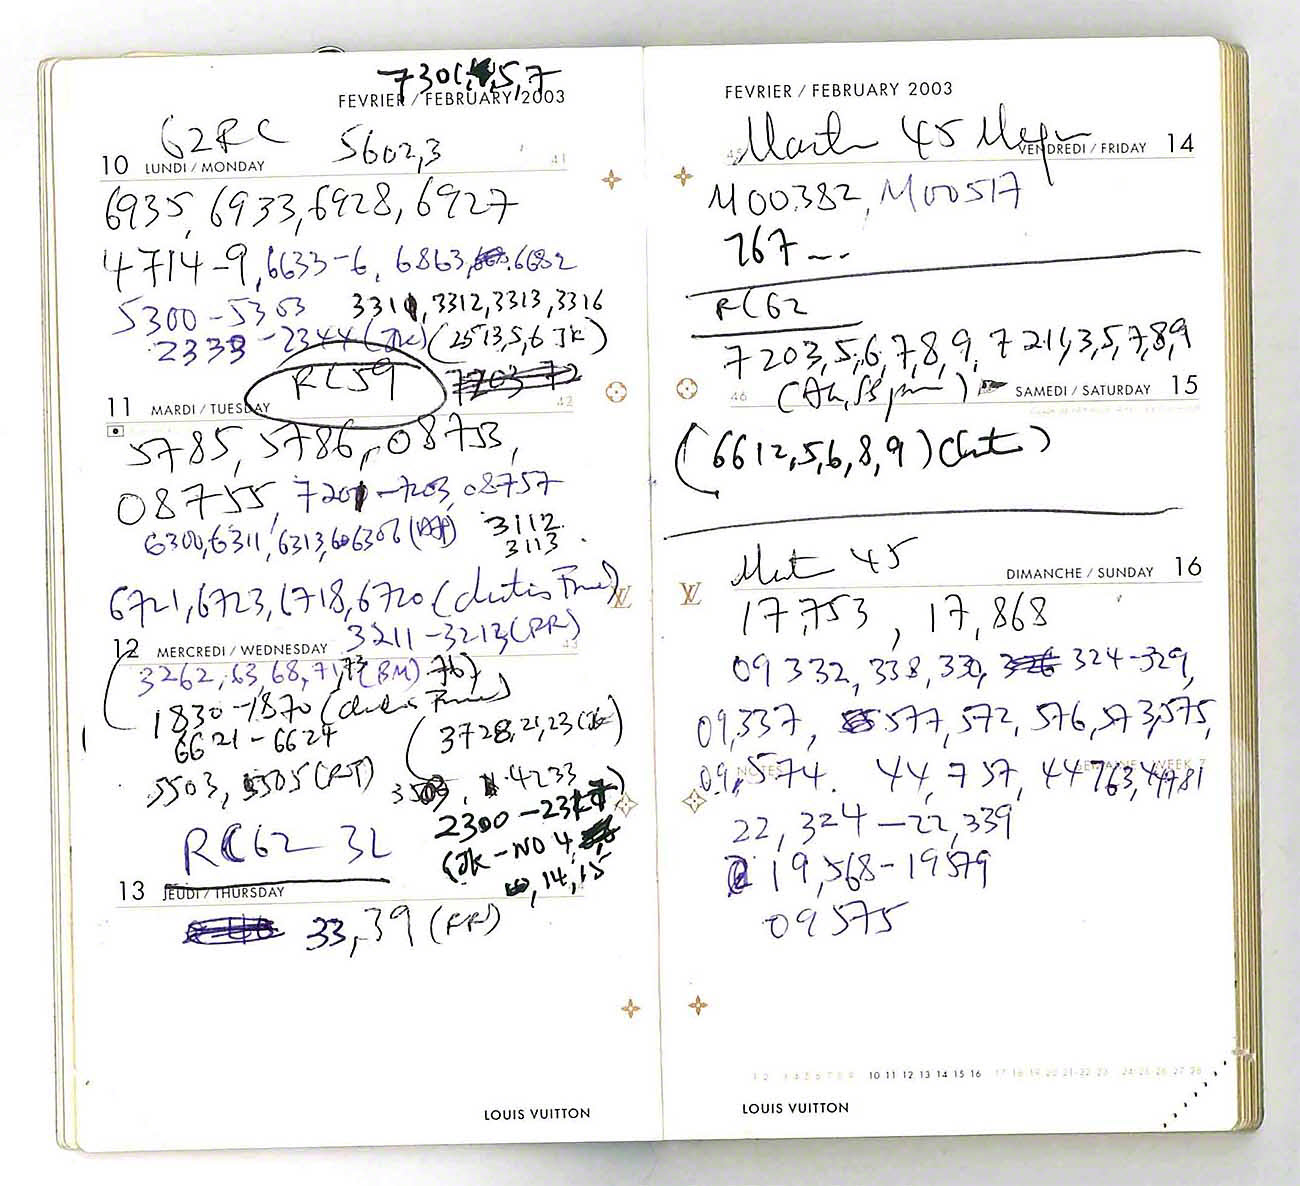 7301, 5, 7
FEVRIER / FEBRUARY 2003
62RC 5602,3
10 LUNDI / MONDAY 41
6935, 6933, 6928, 6927
4714-9, 6633-6, 6863, 6682
5300-5303 3311, 3312, 3313, 3316
2333-2344 (JK) (2513,5,6 JK)
RC59
11 MARDI / TUESDAY 42
5785, 5786, 08753,
08755, 7201-7203, 08757
6300, 6311, 6313, 6306 3112
3113
6721, 6723, 6718, 6720
3211-3213 (RR)
12 MERCREDI / WEDNESDAY 43
3262, 63, 68, 71, 73 (BM) 76)
1830-1870
6621-6624 (3728, 21, 23 (JK)
5503, 5505 (RJ) 4233
2300-23
RC62 32 (JK-NO 4
14, 15
13 JEUDI / THURSDAY
33, 39 (RR)
LOUIS VUITTON
FEVRIER / FEBRUARY 2003
45
45 VENDREDI / FRIDAY 14
M00382, M00517
267...
RC62
7203,5,6,7,8,9, 7211,3,5,7,8,9
46 SAMEDI / SATURDAY 15
(6612,5,6,8,9)
45
DIMANCHE / SUNDAY 16
17,753, 17,868
09 332, 338, 330, 324-329,
09,337, 577, 572, 576, 573, 575,
NOTES SEMAINE / WEEK 7
09,574. 44,757, 44763, 44781
22,324-22,339
19,568-19579
09575
1 2 3 4 5 6 7 8 9 10 11 12 13 14 15 16 17 18 19 20 21 22 23 24 25 26 27 28
LOUIS VUITTON